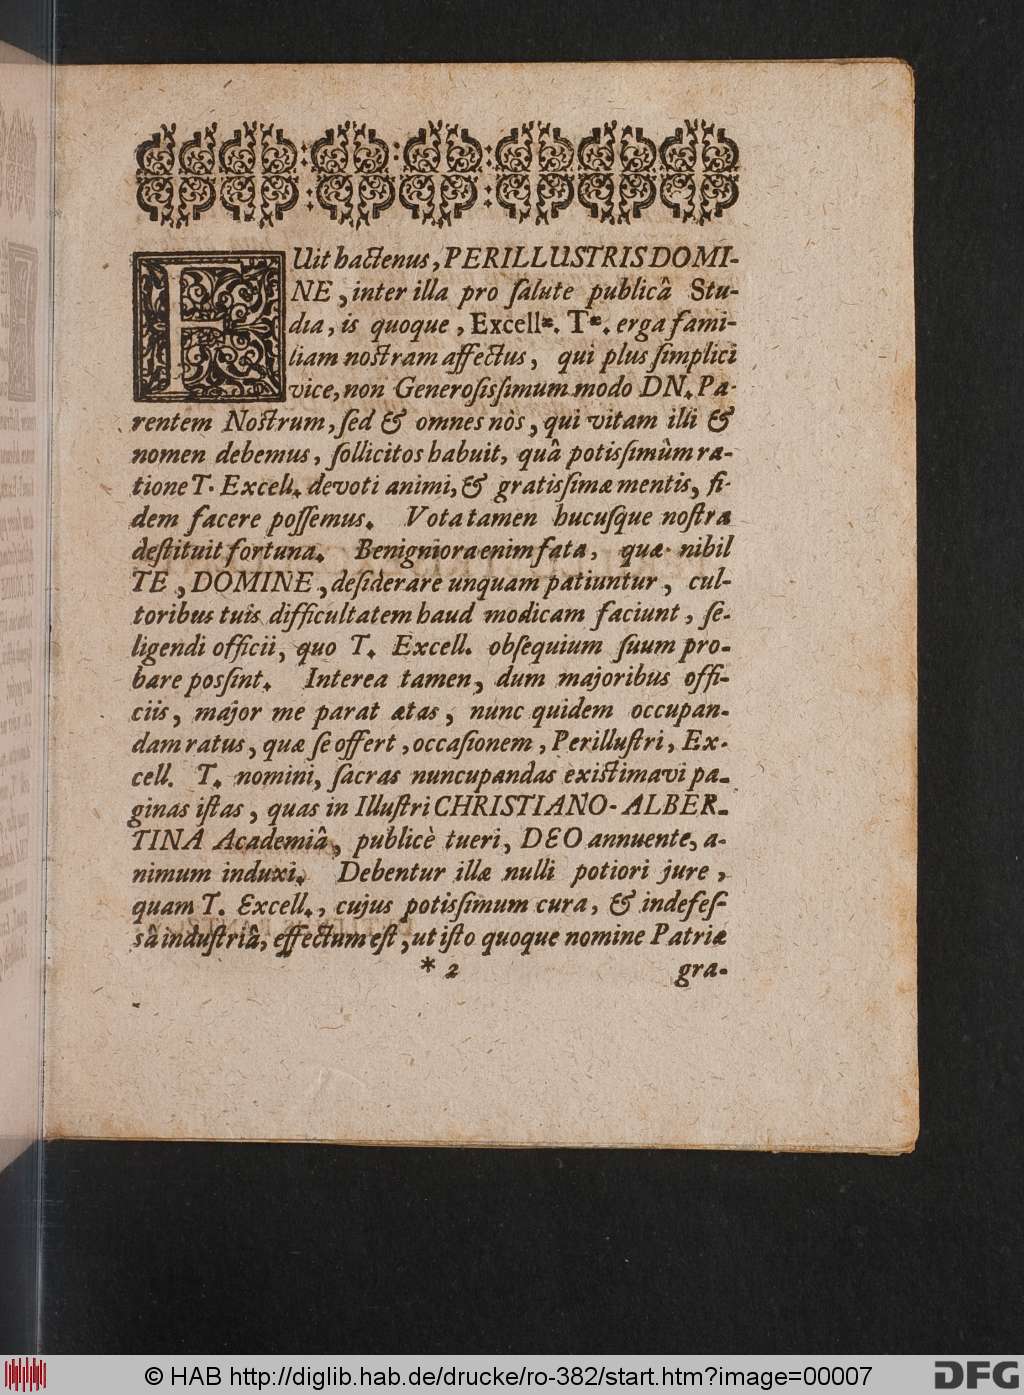 FUit hactenus, PERILLUSTRIS DOMI-
NE, inter illa pro ſalute publicâ Stu-
dia, is quoque, Excellæ. Tæ. erga fami-
liam noſtram affectus, qui plus ſimplici
vice, non Generoſisſimum modo DN. Pa-
rentem Noſtrum, ſed & omnes nòs, qui vitam illi &
nomen debemus, ſollicitos habuit, quâ potisſimùm ra-
tione T. Excell. devoti animi, & gratisſimæ mentis, fi-
dem facere poſſemus. Vota tamen hucuſque noſtra
deſtituit fortuna. Benigniora enim fata, quæ nihil
TE, DOMINE, deſiderare unquam patiuntur, cul-
toribus tuis difficultatem haud modicam faciunt, ſe-
ligendi officii, quo T. Excell. obſequium ſuum pro-
bare posſint. Interea tamen, dum majoribus offi-
ciis, major me parat ætas, nunc quidem occupan-
dam ratus, quæ ſe offert, occaſionem, Perilluſtri, Ex-
cell. T. nomini, ſacras nuncupandas exiſtimavi pa-
ginas iſtas, quas in Illuſtri CHRISTIANO-ALBER-
TINA Academiâ, publicè tueri, DEO annuente, a-
nimum induxi. Debentur illæ nulli potiori jure,
quam T. Excell., cujus potisſimum cura, & indefeſ-
sâ induſtriâ, effectum eſt, ut iſto quoque nomine Patriæ
* 2 gra-
© HAB http://diglib.hab.de/drucke/ro-382/start.htm?image=00007
DFG